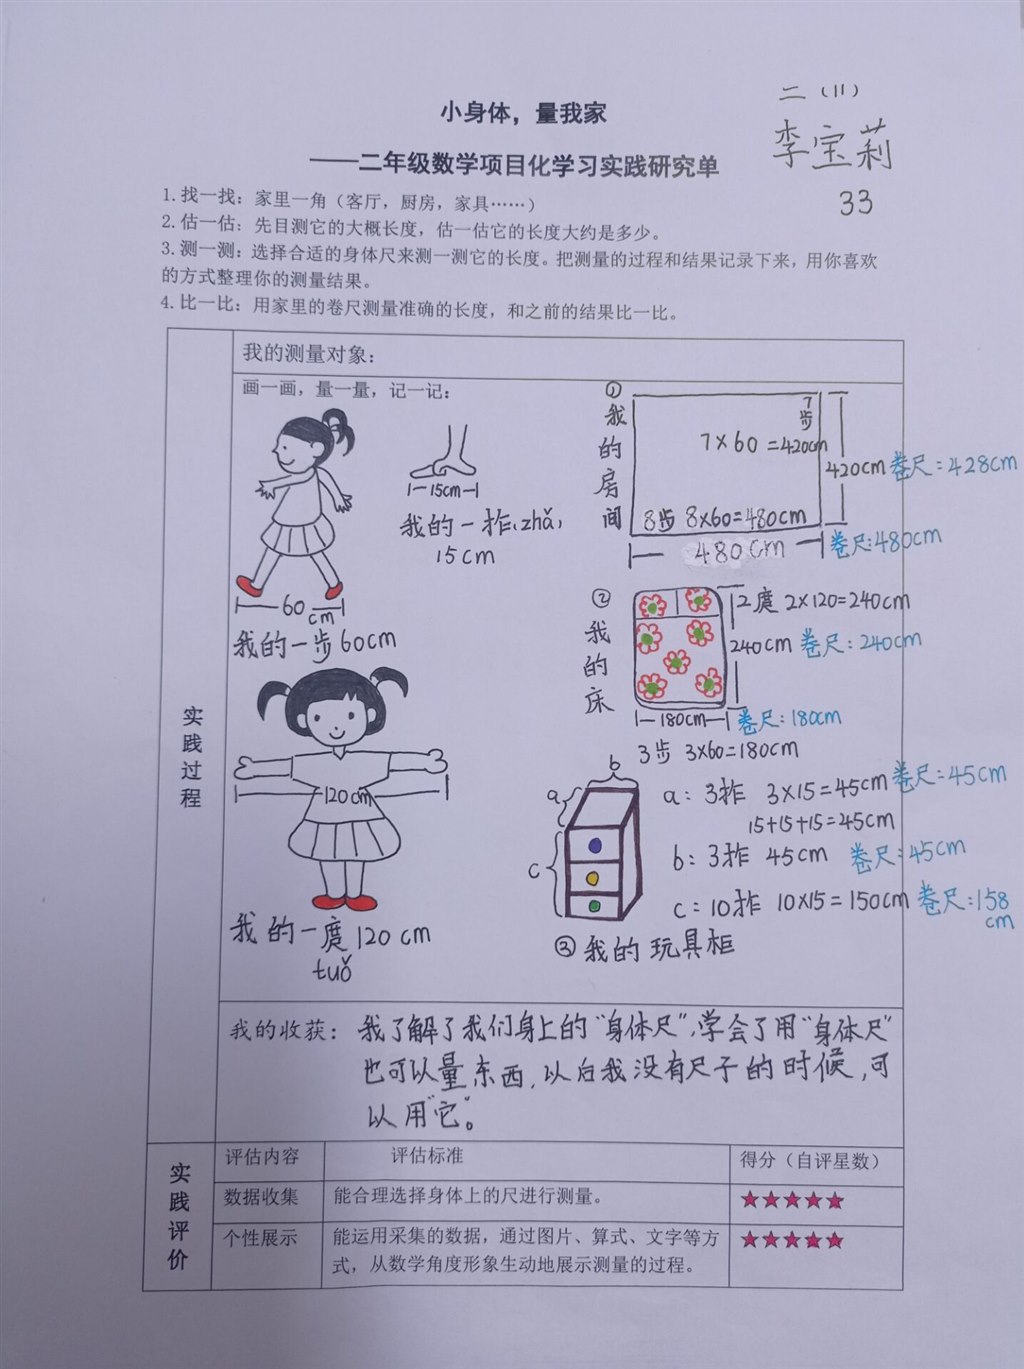 二（11）
小身体，量我家
李宝莉
——二年级数学项目化学习实践研究单
33
1. 找一找：家里一角（客厅，厨房，家具……）
2. 估一估：先目测它的大概长度，估一估它的长度大约是多少。
3. 测一测：选择合适的身体尺来测一测它的长度。把测量的过程和结果记录下来，用你喜欢
的方式整理你的测量结果。
4. 比一比：用家里的卷尺测量准确的长度，和之前的结果比一比。
实践过程
我的测量对象：
画一画，量一量，记一记：
60cm
我的一步60cm
15cm
我的一拃（zhǎ）
15cm
120cm
我的一庹120cm
tuǒ
①我的房间
7步
7×60=420cm
420cm 卷尺：428cm
8步 8×60=480cm
480cm
卷尺：480cm
②我的床
2庹 2×120=240cm
240cm 卷尺：240cm
180cm 卷尺：180cm
3步 3×60=180cm
b
a
c
a：3拃 3×15=45cm 卷尺：45cm
15+15+15=45cm
b：3拃 45cm 卷尺：45cm
c：10拃 10×15=150cm 卷尺：158cm
③我的玩具柜
我的收获：我了解了我们身上的“身体尺”，学会了用“身体尺”
也可以量东西，以后我没有尺子的时候，可
以用“它”。
实践评价
评估内容 评估标准 得分（自评星数）
数据收集 能合理选择身体上的尺进行测量。 ★★★★★
个性展示 能运用采集的数据，通过图片、算式、文字等方 ★★★★★
式，从数学角度形象生动地展示测量的过程。